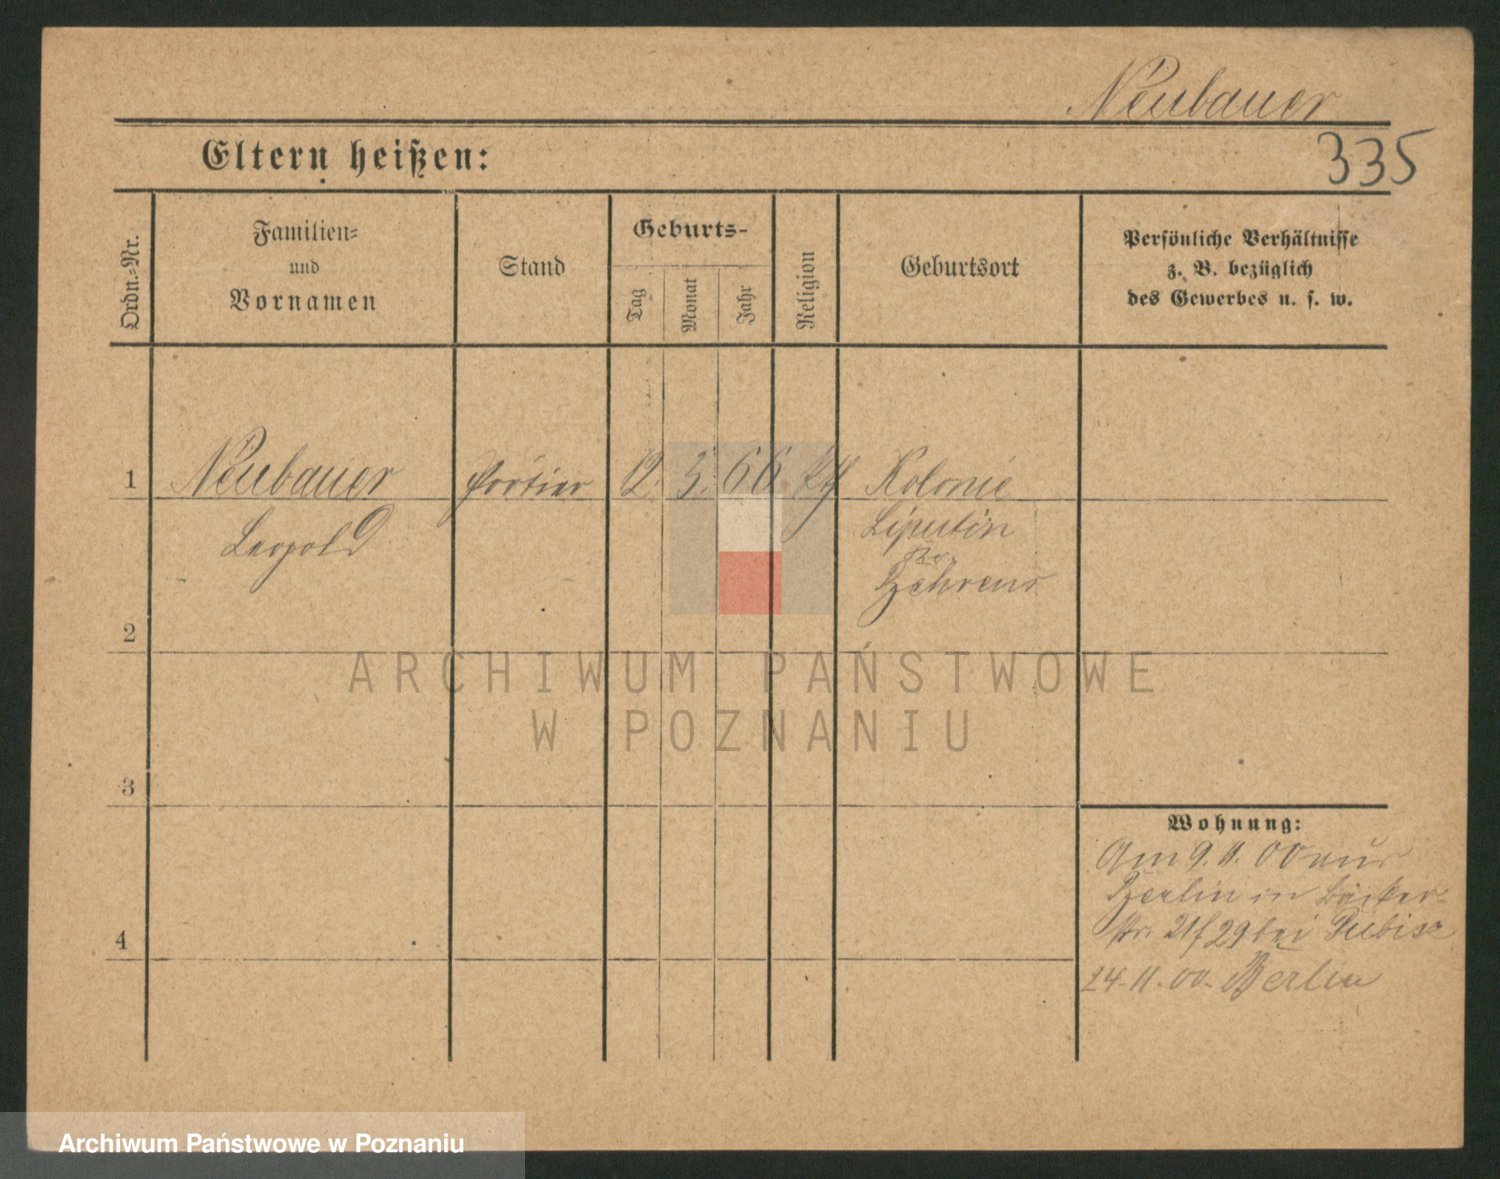 Neubauer
335
Eltern heißen:
Ordn.-Nr.
Familien-
und
Vornamen
Stand
Geburts-
Tag
Monat
Jahr
Religion
Geburtsort
Persönliche Verhältnisse
z. B. bezüglich
des Gewerbes u. s. w.
1
Neubauer
Leopold
Portier
12.
3.
66
Kolonie
Kr.
2
3
4
Wohnung:
Am 9. 11. 00 aus
Berlin in Bäcker-
str. 29 bei
24. 11. 00. Berlin
ARCHIWUM PAŃSTWOWE
W POZNANIU
Archiwum Państwowe w Poznaniu